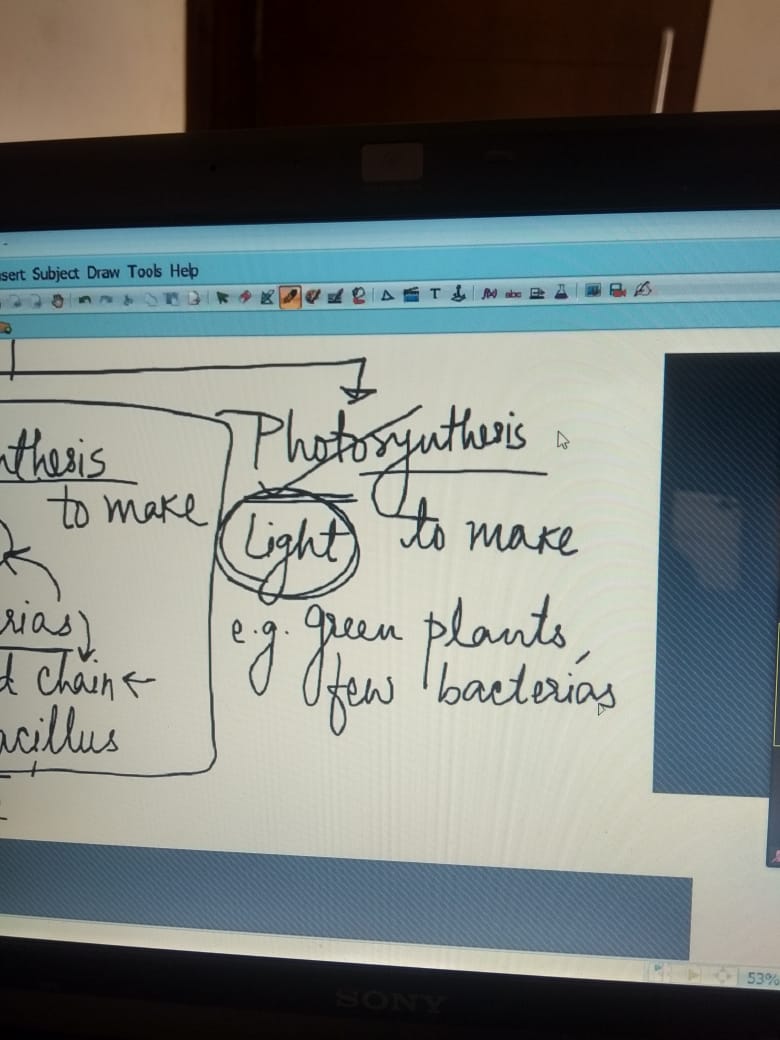 sert Subject Draw Tools Help
T f(x) abc
nthesis
to make
rias)
d chain ←
acillus
Photosynthesis
Light to make
e.g. green plants,
few bacterias
53%
SONY